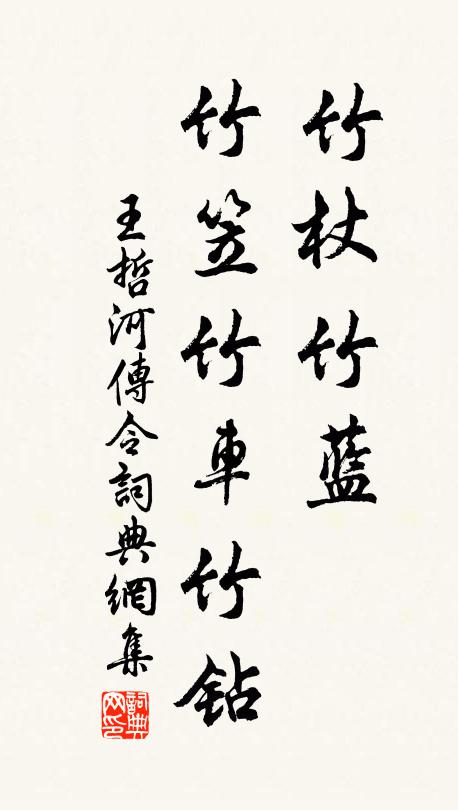 竹杖竹藍
竹笠竹車竹鉆
王哲河傳令詞典網集
詞典网印